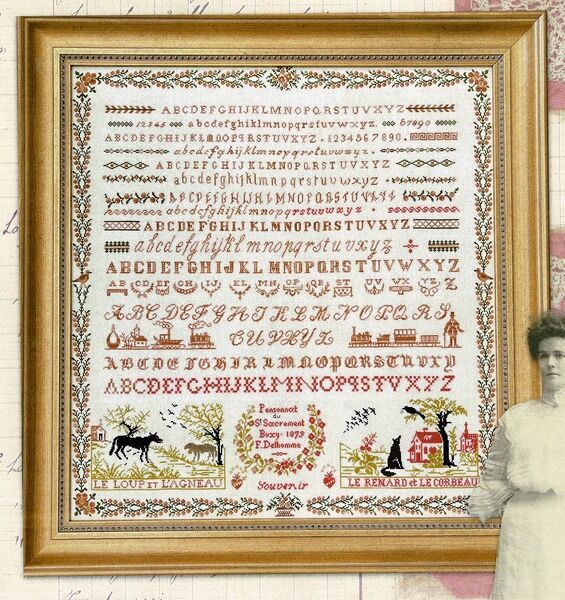 ABCDEFGHIJKLMNOPQRSTUVXYZ
12345 abcdefghijklmnopqrstuvxyz 67890
ABCDEFGHIJKLMNOPQRSTUVXYZ. 1234567890.
abcdefghijklmnopqrstuvwxyz.
ABCDEFGHIJKLMNOPQRSTUVXYZ
abcdefghijklmnopqrstuvwxyz
ABCDEFGHIJKLMNOPQRSTUVXYZ
abcdefghijklmnopqrstuvwxyz.
ABCDEFGHIJKLMNOPQRSTUVXYZ
abcdefghijklmnopqrstuvxyz
ABCDEFGHIJKLMNOPQRSTUVWXYZ
AB CD EF GH IJ KL MN OP QR ST UV WX YZ
ABCDEFGHIJKLMNOPQRS
TUVXYZ
ABCDEFGHIJKLMNOPQRSTUVXYZ
ABCDEFGHIJKLMNOPQRSTVXYZ
Pensonnat
du
St Sacrement
Buxy - 1879
F. Delhomme
LE LOUP ET L'AGNEAU
Souvenir
LE RENARD et LE CORBEAU